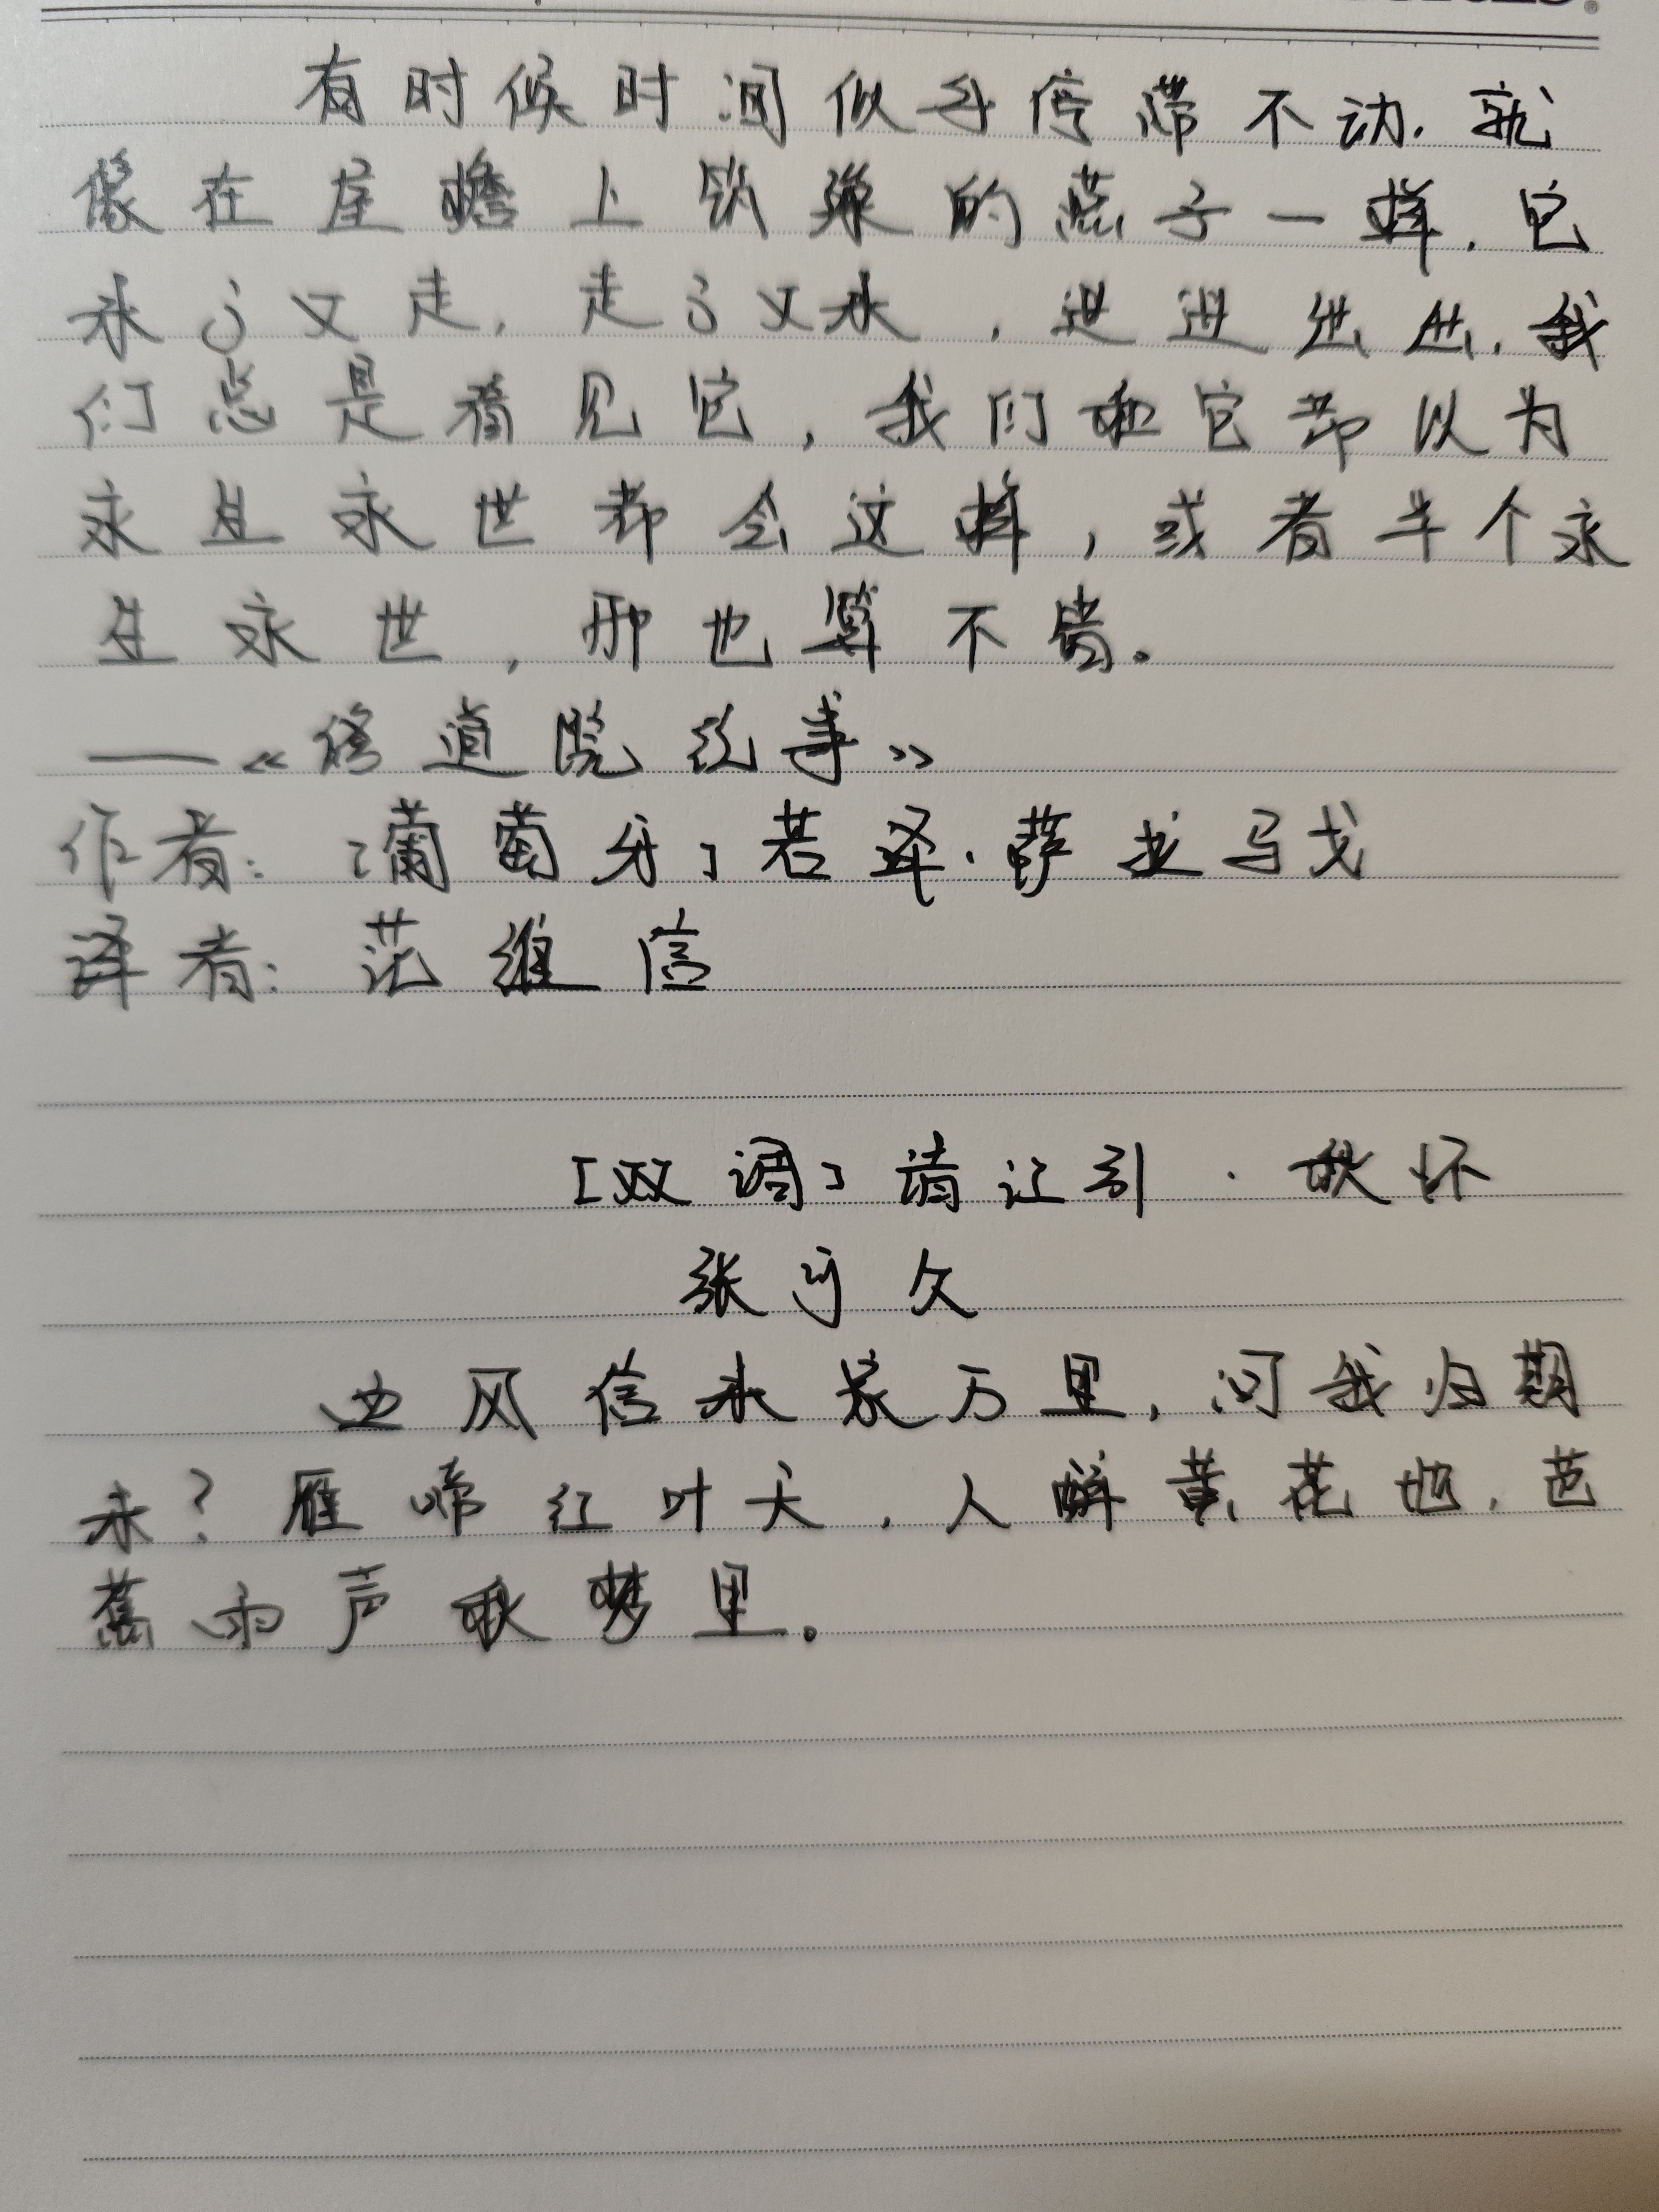 有时候时间似乎停滞不动,就
像在屋檐上筑巢的燕子一样,它
来了又走,走了又来,进进出出,我
们总是看见它,我们和它都以为
永生永世都会这样,或者半个永
生永世,那也算不错。
——《修道院纪事》
作者:[葡萄牙]若泽·萨拉马戈
译者:范维信
[双调]清江引·秋怀
张可久
西风信来家万里,问我归期
未?雁啼红叶天,人醉黄花地,芭
蕉雨声秋梦里。